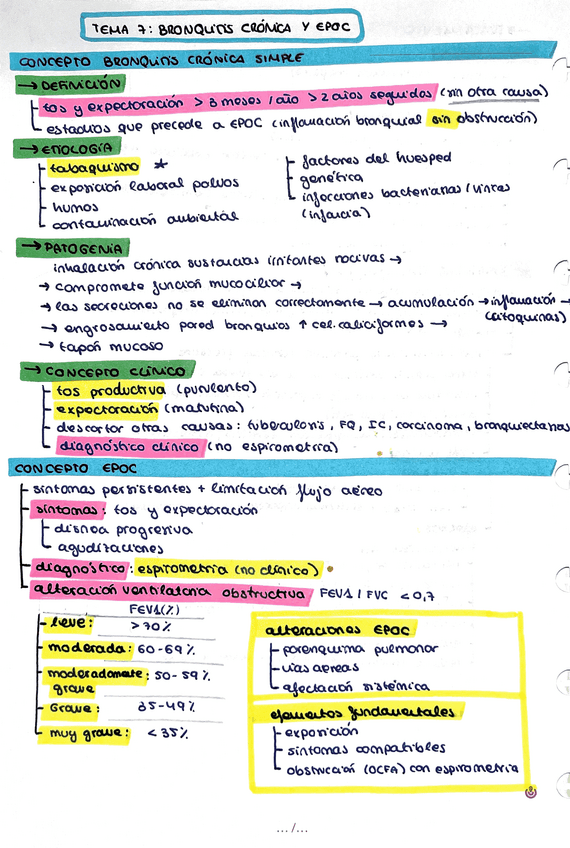 TEMA 7: BRONQUITIS CRÓNICA Y EPOC
CONCEPTO BRONQUITIS CRÓNICA SIMPLE
→ DEFINICIÓN
tos y expectoración > 3 meses / año > 2 años seguidos (sin otra causa)
estadios que precede a EPOC (inflamación bronquial sin obstrucción)
→ ETIOLOGÍA
tabaquismo ★
exposición laboral polvos
humos
contaminación ambiental
factores del huesped
genética
infecciones bacterianas / virales
(infancia)
→ PATOGENIA
inhalación crónica sustancias irritantes nocivas →
→ compromete función mucociliar →
→ las secreciones no se eliminan correctamente → acumulación → inflamación →
(citoquinas)
→ engrosamiento pared bronquios ↑ cel. caliciformes →
→ tapón mucoso
→ CONCEPTO CLÍNICO
tos productiva (purulento)
expectoración (matutina)
descartar otras causas: tuberculosis, FQ, IC, carcinoma, bronquiectasias
diagnóstico clínico (no espirometría)
CONCEPTO EPOC
síntomas persistentes + limitación flujo aéreo
síntomas: tos y expectoración
disnea progresiva
agudizaciones
diagnóstico: espirometría (no clínico)
alteración ventilatoria obstructiva FEV1 / FVC < 0,7
FEV1(%)
leve: > 70%
moderada: 60-69%
moderadamente 50-59%
grave
Grave: 35-49%
muy grave: < 35%
alteraciones EPOC
parenquima pulmonar
vías aereas
afectación sistémica
elementos fundamentales
exposición
síntomas compatibles
obstrucción (OCFA) con espirometría
... /...